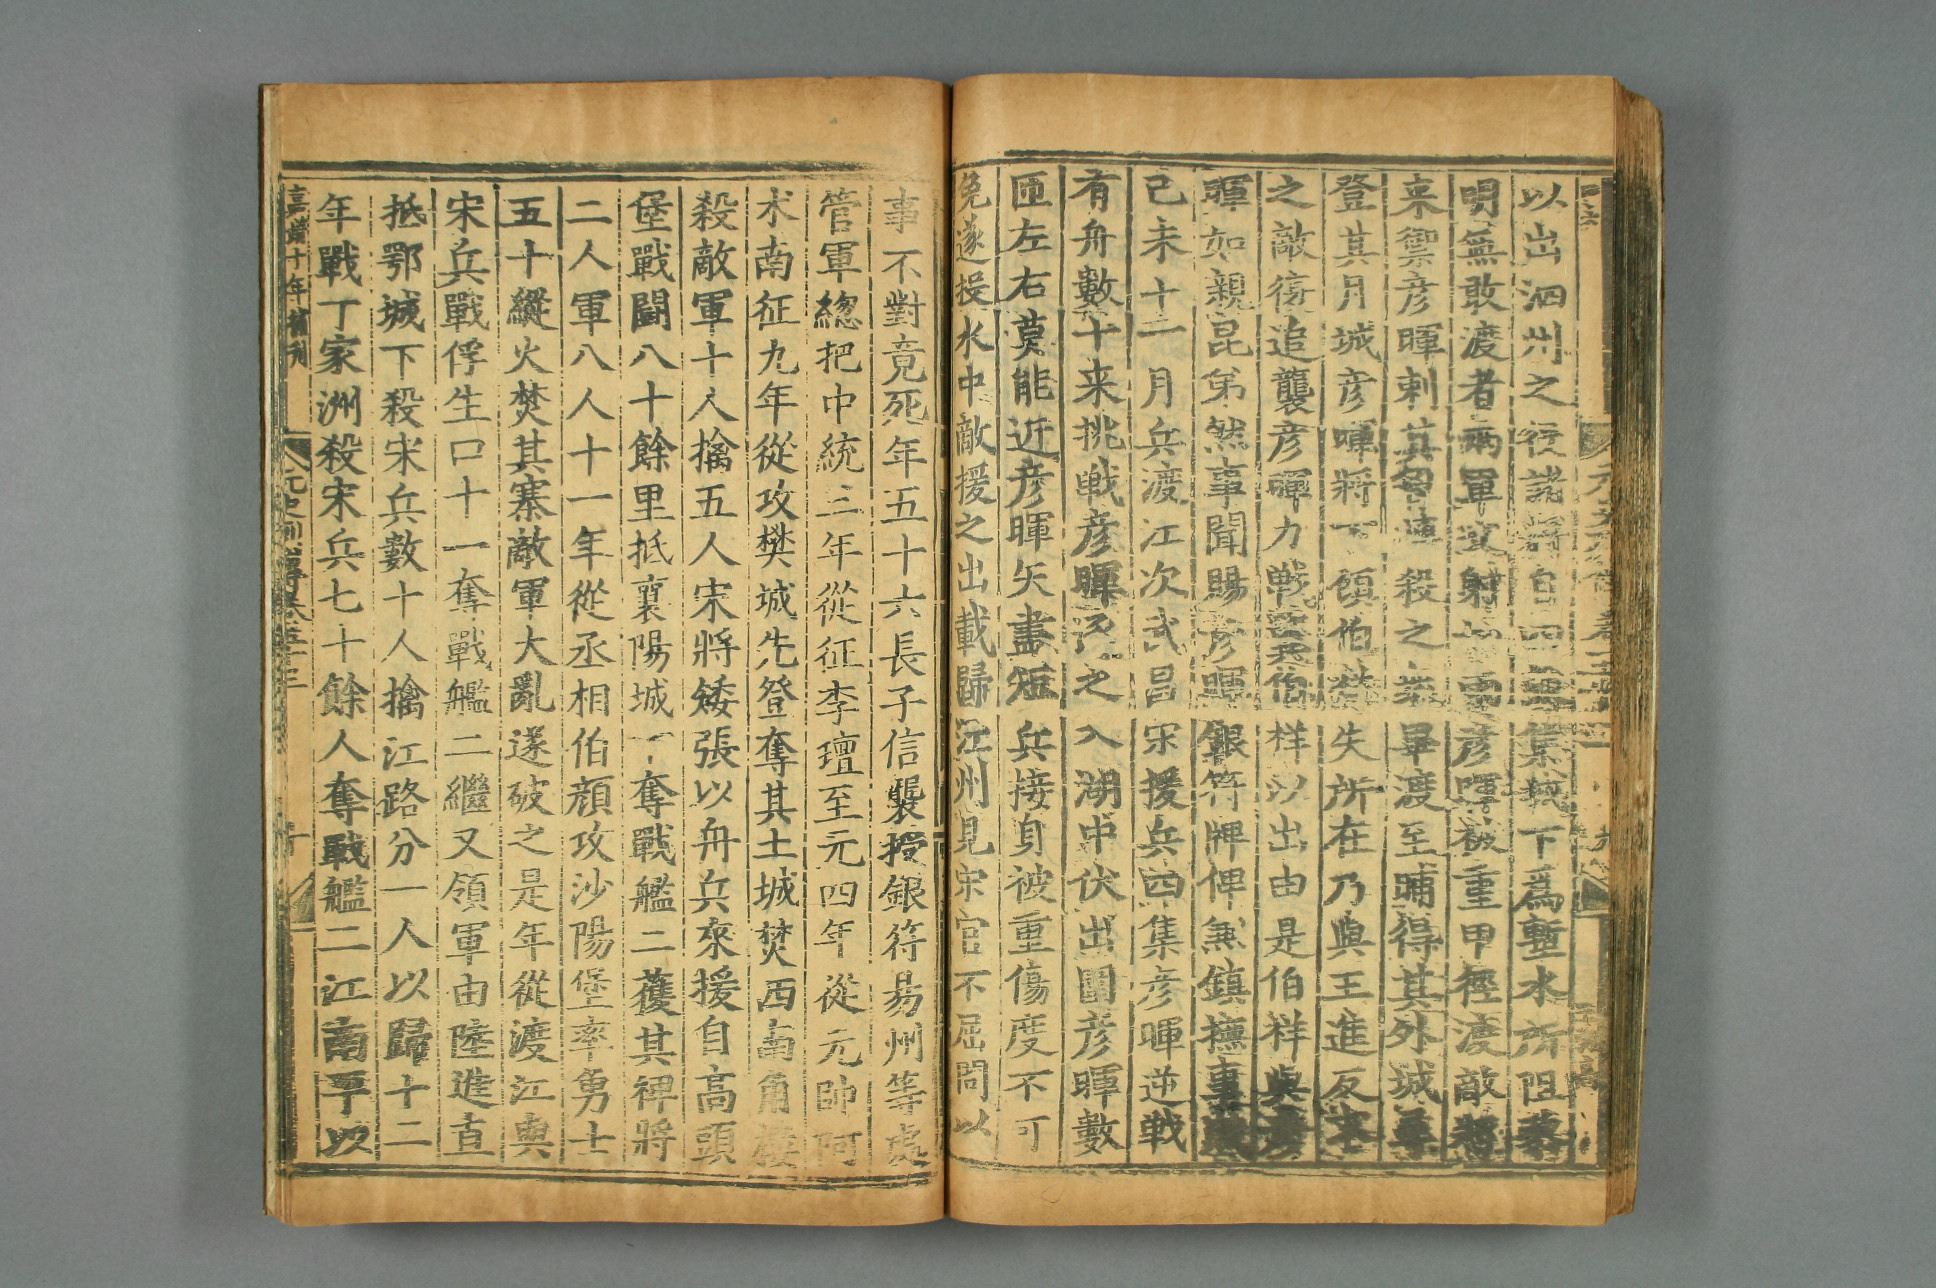 以出泗州之後諸將自四集薮下爲塹水所阻黎
明無敢渡者兩軍交射如雨彦暉被重甲徑渡敵將
來禦彦暉刺其殺之衆畢渡至晡得其外城
登其月城彦暉將下顧伯祥失所在乃與王進反
之敵復追襲彦暉力戰翼伯祥以出由是伯祥與彦
暉如親昆弟然事聞賜彦暉銀符牌俾兼鎮撫事
己未十二月兵渡江次武昌宋援兵四集彦暉逆戦
有舟數十来挑戦彦暉逐之入湖中伏出圍彦暉數
匝左右莫能近彦暉矢盡短兵接身被重傷度不可
免遂投水中敵援之出載歸江州見宋官不屈問以
事不對竟死年五十六長子信襲授銀符易州等處
管軍總把中統三年從征李璮至元四年從元帥阿
术南征九年從攻樊城先登奪其土城焚西南角樓
殺敵軍十人擒五人宋將矮張以舟兵來援自高頭
堡戰鬪八十餘里抵襄陽城下奪戰艦二獲其裨將
二人軍八人十一年從丞相伯顔攻沙陽堡率勇士
五十縱火焚其寨敵軍大亂遂破之是年從渡江與
宋兵戰俘生口十一奪戰艦二繼又領軍由陸進直
抵鄂城下殺宋兵數十人擒江路分一人以歸十二
年戰丁家洲殺宋兵七十餘人奪戰艦二江南平以
嘉靖十年補刊 元史列傳卷五十三